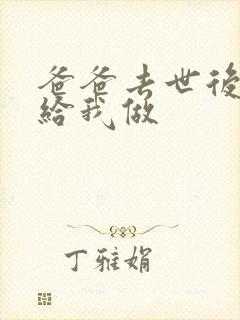 爸爸去世後
給我做
丁雅娟